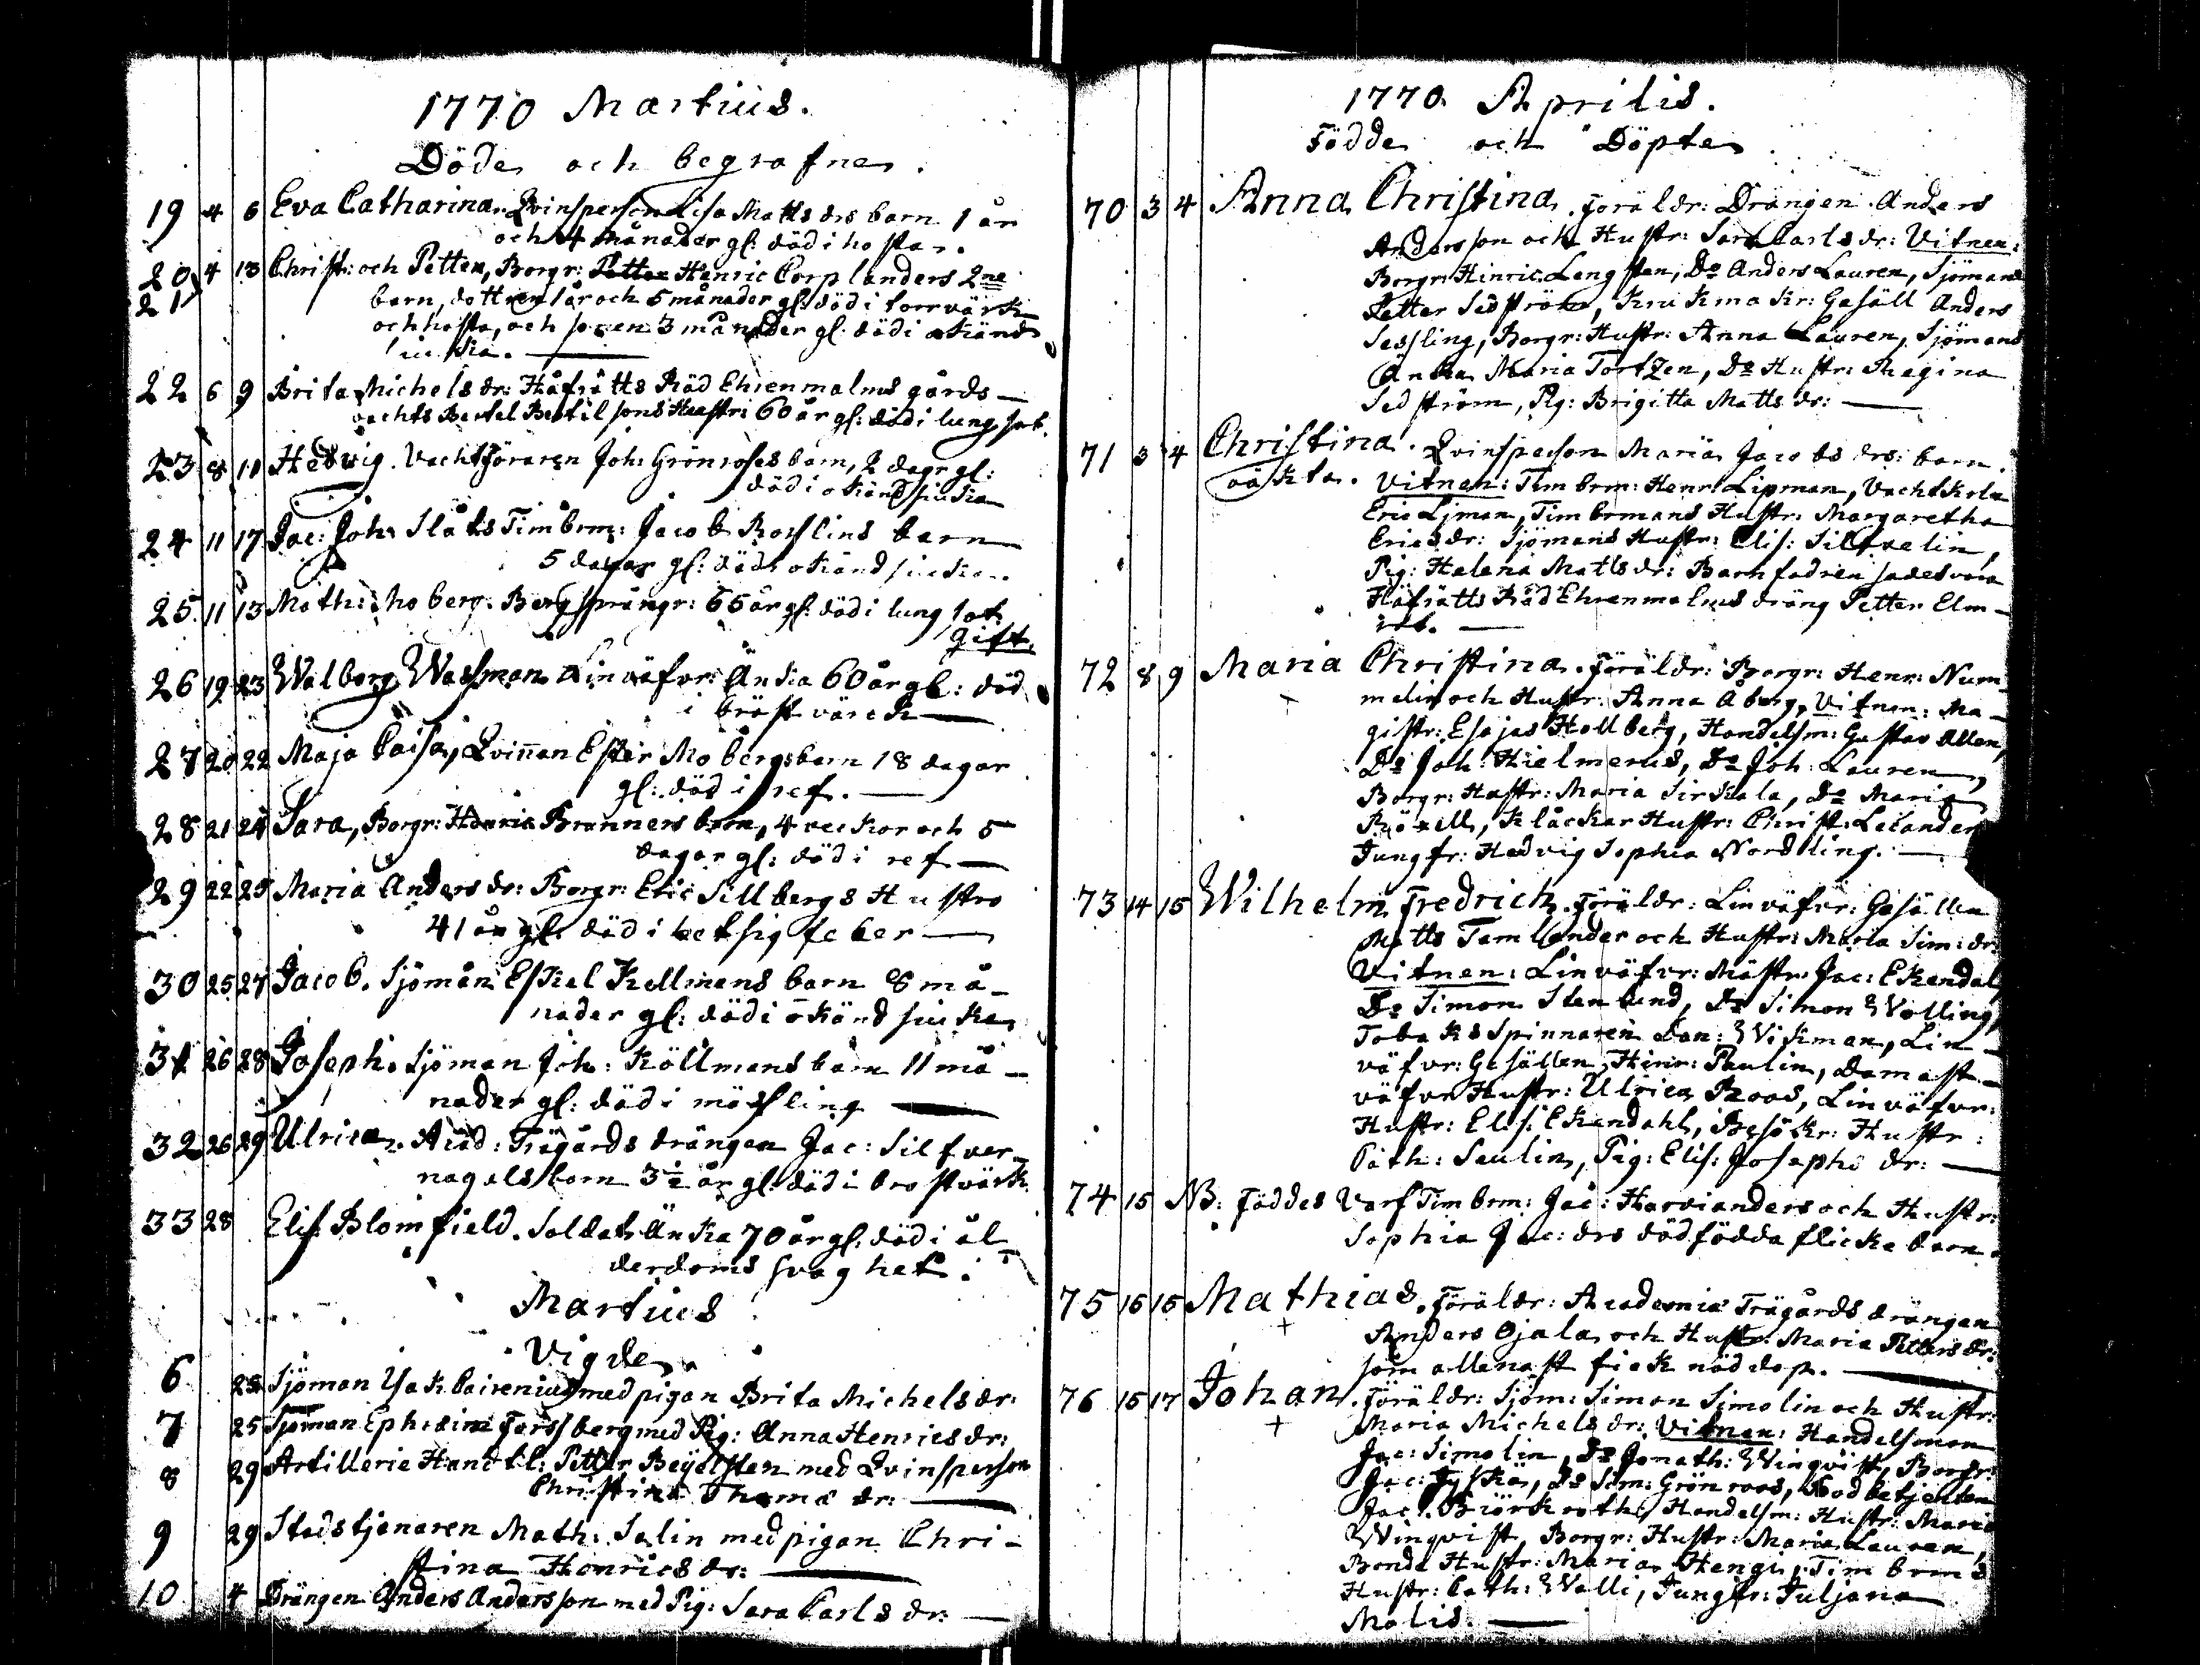 1770 Martius.
Döde och begrafne.
19 4 6 Eva Catharina. Qvinsperson Lisa Matts drs barn 1 år
och 4 månader gl: död i hosta.
20 4 13 Christ: och Petter, Borgr: Petter Henric Corplanders 2ne
21 barn, dottren 1 år och 5 månader gl: död i torrvärk
och hosta, och sonen 3 månader gl: död i okänd
siuka.
22 6 9 Brita Michelsdr: Håfrätts Råd Ehrenmalms gårds
vachts Bertel Bertilsons Hustru 60 år gl: död i lungsot.
23 8 11 Hedvig. Vachtgöraren Joh: Grönroses barn, 2 dagr gl:
död i okänd siuka
24 11 17 Jac: Joh: Slåts Timbrm: Jacob Rosslins barn
5 dagar gl: död i okänd siuka.
25 11 13 Math: Moberg. Bergsprängr: 65 år gl: död i lungsot.
gift.
26 19 23 Walborg Wassman Linväfvr: Änka 60 år gl: död
i bröstvärck
27 20 22 Maja Caisa, Qvinnan Ester Mobergs barn 18 dagar
gl: död i ref.
28 21 24 Sara, Borgr: Henric Brunners barn, 4 veckor och 5
dagar gl: död i ref
29 22 25 Maria Andersdr: Borgr: Eric Sillbergs Hustru
41 år gl: död i hetsig feber
30 25 27 Jacob. Sjöman Eskel Kellmans barn 8 må-
nader gl: död i okänd siuka
31 26 28 Joseph. Sjöman Joh: Köllmans barn 11 må-
nader gl: död i mässling
32 26 29 Ulrica. Acad: Trägårds drängen Jac: Silfver-
nagels barn 3½ år gl: död i brostvärk
33 28 Elis: Blomfield. Soldats Änka 70 år gl: död i ål-
derdoms svaghet.
Martius
Vigde
6 28 Sjöman Isak Cairenius med pigan Brita Michelsdr:
7 25 Sjöman Ephraim Forssberg med Pig: Anna Henricsdr:
8 29 Artillerie Handtl: Petter Beijelsten med Qvinsperson
Christina Thomædr:
9 29 Stadstjenaren Math: Salin med pigan Chri-
stina Henricsdr:
10 4 Drängen Anders Andersson med Pig: Sara Carlsdr:
1770 Aprilis.
Födde och Döpte
70 3 4 Anna Christina. Föräldr: Drängen Anders
Andersson och Hustr: Sara Carlsdr: Vitnen:
Borgr: Hinric Lengsten, Do Anders Lauren, Sjömans
Petter Sedström, Krukmakr: Gesäll Anders
Sessling, Borgr: Hustr: Anna Lauren, Sjömans
Änka Maria Tortzen, Do Hustr: Regina
Sedström, Pig: Brigitta Mattsdr:
71 3 4 Christina. Qvinsperson Maria Jacobs drs: barn.
oäkta. Vitnen: Timbrm: Henr: Lipman, Vachtkrln
Eric Liman, Timbrmans Hustr: Margaretha
Ericsdr: Sjömans Hustr: Elis: Silfvelin,
Pig: Halena Mattsdr: Barnfadren sades vara
Håfrätts Råd Ehrenmalms dräng Petter Elm-
72 8 9 Maria Christina. Föräldr: Borgr: Henr: Num-
melin och Hustr: Anna Åberg, Vitnen: Ma-
gistr: Esajas Hollberg, Handelsm: Gustav Allen,
Do Joh: Hielmerus, Do Joh: Lauren,
Borgr: Hustr: Maria Sirkala, Do Maria
Klåckar Hustr: Christ: Lelander
Jungfr: Hedvig Sophia Nordling.
73 14 15 Wilhelm Fredrich. Föräldr: Linväfvr: Gesällen
Matts Tamlander och Hustr: Maria Sim:dr
Vitnen: Linväfvr: Mästr: Jac: Ekendal
Do Simon Stenlund, Do Simon Wolling,
Tobaks Spinnaren Dan: Wikman, Lin-
väfvr: Gesällen Hinr: Paulin, Damast-
väfvr Hustr: Ulrica Roos, Linväfvr:
Hustr: Elis: Ekendahl, Besökr: Hustr:
Cath: Saulin, Pig: Elis: Josephs dr:
74 15 NB: Föddes Varf Timbrm: Jac: Harvianders och Hustr:
Sophia Jac:drs dödfödda flicke barn.
75 15 15 Mathias. Föräldr: Academiæ Trägårds drängen
Anders Ojala och Hustr: Maria Pettersdr:
som allenast fick nöddop.
76 15 17 Johan. Föräldr: Sjöm: Simon Simolin och Hustr:
Maria Michelsdr: Vitnen: Handelsman
Jac: Simolin, Do Jonath: Winqvist, Borgr:
Jac: Jyskä, Do Sim: Grönroos, Vodbetjenten
Jac: Biörkroth, Handelsm: Hustr: Maria
Winqvist, Borgr: Hustr: Maria Lauren,
Bonde Hustr: Maria Hengi, Timbrms
Hustr: Cath: Walli, Jungfr: Juljana
Malis.